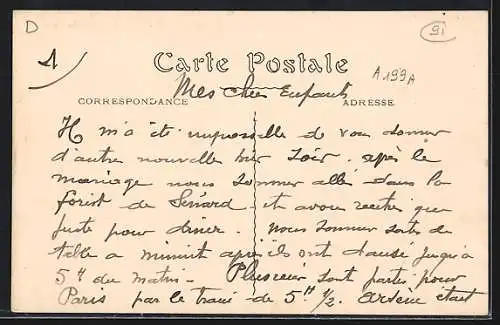 D
91
1
Carte Postale
A199A
Mes chers Enfants
CORRESPONDANCE
ADRESSE
Il m'a été imposselle de vous donner
d'autre nouvelle hier soir. après le
mariage nous sommes allés dans la
foret de Senard et avons rentrer que
juste pour diner. Nous sommes sortis de
table a minuit après ils ont dansé jusqu'à
5H du matin - Plusieur sont partis pour
Paris par le train de 5H 1/2. Arsène était